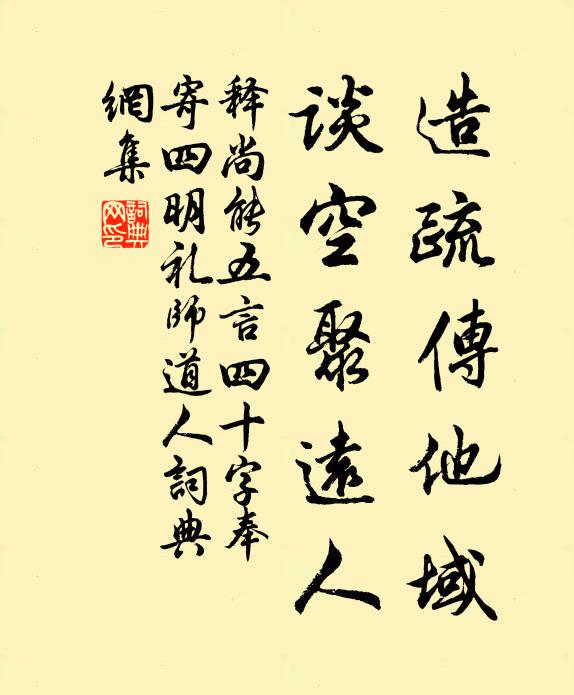 造疏傳他域
談空聚遠人
释尚能五言四十字奉
寄四明礼師道人詞典
網集
詞典網印